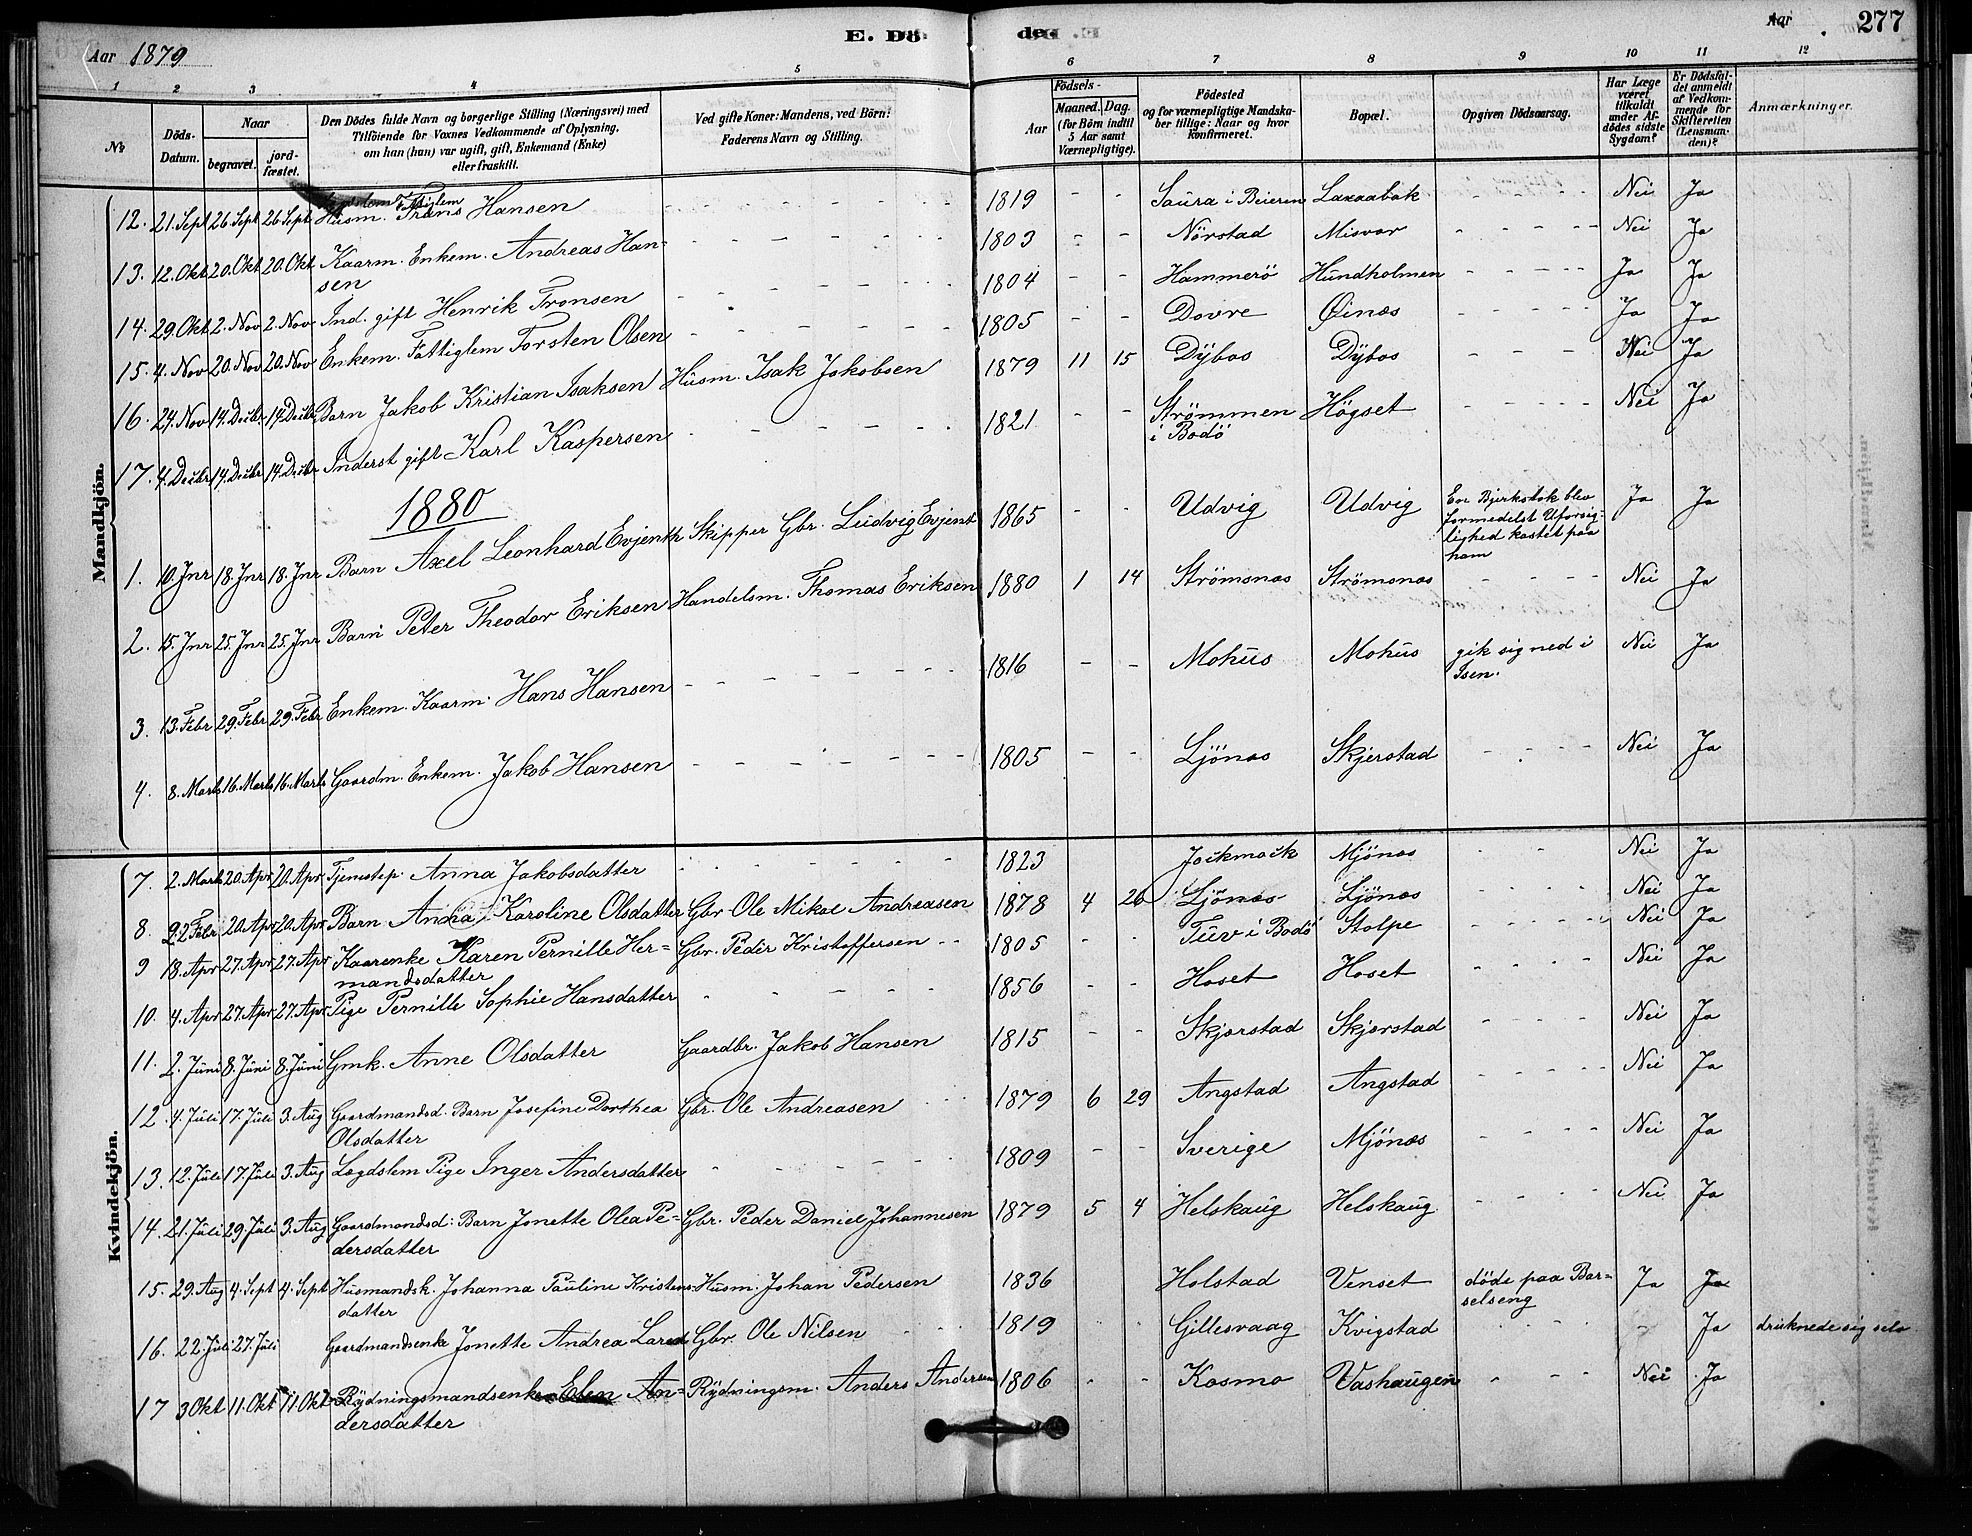 Aar 1879
E. Dö- de.
Aar
277
1 2 3 4 5 6 7 8 9 10 11 12
№
Döds-Datum.
Naar
begravet.
jord-fæstet.
Den Dödes fulde Navn og borgerlige Stilling (Næringsvei) med
Tilföiende for Voxnes Vedkommende af Oplysning,
om han (hun) var ugift, gift, Enkemand (Enke)
eller fraskilt.
Ved gifte Koner: Mandens, ved Börn:
Faderens Navn og Stilling.
Aar
Födsels-
Maaned. Dag.
(for Börn indtil
5 Aar samt
Værnepligtige).
Födested
og for værnepligtige Mandska-
ber tillige: Naar og hvor
konfirmeret.
Bopæl.
Opgiven Dödsaarsag.
Har Læge
været
tilkaldt
under Af-
dödes sidste
Sygdom?
Er Dödsfal-
det anmeldt
af Vedkom-
mende for
Skifteretten
(Lensman-
den)?
Anmærkninger.
Mandkjön.
12. 21. Sept 26. Sept 26. Sept Husm. Frans Hansen - 1819 - - Saura i Beieren Laxaabak Nei Ja
13. 12. Okt 20. Okt 20. Okt Kaarm. Enkem. Andreas Han-
sen - 1803 - - Nörstad Misvær - Nei Ja
14. 29. Okt 2. Nov 2. Nov Ind. gift Henrik Tronsen - 1804 - - Hammerö Hundholmen - Ja Ja
15. 4. Nov 20. Nov 20. Nov Enkem. Fattiglem Torsten Olsen - 1805 - - Dovre Øinæs - Ja Ja
16. 24. Nov 14. Decbr 14. Decbr Barn Jakob Kristian Isaksen Husm. Isak Jakobsen 1879 11 15 Dybos Dybos - Nei Ja
17. 4. Decbr 14. Decbr 14. Decbr Inderst gift Karl Kaspersen - 1821 - - Strömmen
i Bodö Högset - Nei Ja
1880
1. 10. Jnr 18. Jnr 18. Jnr Barn Axel Leonhard Evjenth Skipper Gbr. Ludvig Evjent 1865 - - Udvig Udvig En Bjerkstok blev
formedelst Uforsig-
lighed kastet paa
ham Ja Ja
2. 15. Jnr 25. Jnr 25. Jnr Barn Peter Theodor Eriksen Handelsm. Thomas Eriksen 1880 1 14 Strömsnæs Strömsnæs - Nei Ja
3. 13. Febr 29. Febr 29. Febr Enkem. Kaarm. Hans Hansen - 1816 - - Mohus Mohus gik sig ned i
Isen. Nei Ja
4. 8. Marts 16. Marts 16. Marts Gaardm. Enkem. Jakob Hansen - 1805 - - Ljönæs Skjerstad - Nei Ja
Kvindekjön.
7. 2. Marts 20. Apr 20. Apr Tjenstep. Anna Jakobsdatter - 1823 Jockmock Mjönæs - Nei Ja
8. 22 Febr 20. Apr 20. Apr Barn Andrea Karoline Olsdatter Gbr Ole Mikal Andreasen 1878 4 26 Ljönæs Ljönæs - Nei Ja
9 18. Apr 27. Apr 27. Apr Kaarenke Karen Pernille Her-
mandsdatter Gbr. Peder Kristoffersen 1805 - - Tuv i Bodö Stolpe - Nei Ja
10. 4. Apr 27. Apr 27. Apr Pige Pernille Sophie Hansdatter - 1856 - - Hoset Hoset - Nei Ja
11. 2. Juni 8. Juni 8. Juni Gmk. Anne Olsdatter Gaardbr. Jakob Hansen 1815 - - Skjerstad Skjerstad - Nei Ja
12. 4. Juli 17. Juli 3. Aug Gaardmandsd. Barn Josefine Dorthea
Olsdatter Gbr. Ole Andreasen 1879 6 29 Angstad Angstad - Nei Ja
13. 12. Juli 17. Juli 3. Aug Lægdslem Pige Inger Andersdatter - 1809 - - Sverige Mjönæs - Nei Ja
14. 21. Juli 29. Juli 3. Aug Gaardmandsd: Barn Jonette Olea Pe-
dersdatter Gbr. Peder Daniel Johannesen 1879 5 4 Helskaug Helskaug - Nei Ja
15. 29. Aug 4. Sept 4. Sept Husmandsk. Johanna Pauline Kristens-
datter Husm. Johan Pedersen 1836 Holstad Venset döde paa Bar-
selseng Ja Ja
16. 22 Juli 27. Juli Gaardmandsenke Jonette Andrea Gbr. Ole Nilsen 1819 Gillesvaag Kvigstad - Ja druknede sig selv
17 3 Okt 11. Okt 11. Okt Rydningsmandsenke Elen An-
dersdatter Rydningsm. Anders Andersen 1806 - - Kosmo Vashaugen - Nei Ja